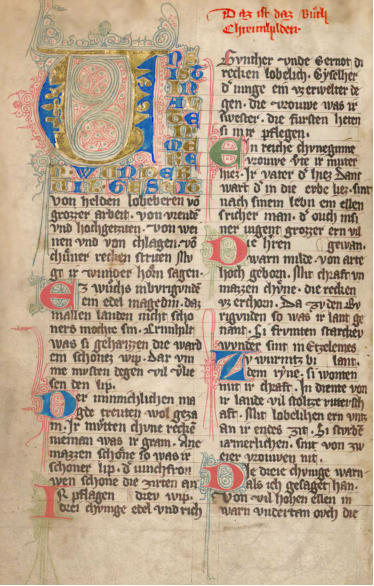 Daz ist daz Buch
Chreimhilden.
UNS
IST
IN
WUNDER
VIL GESEIT
von helden lobeberen vo
grozzer arbeit. von vreude
vnd hochgeziten. von wei
nen vnd von chlagen. vo
chuner recken striten Mu
gt ir wunder horn sagen.
Ez wuchs inburigunde
ein edel magedin. daz
in allen landen nicht scho
ners mochte sin. Crimhilt
was si geheizzen die ward
ein schonez wip. Dar vm
me musten degen vil vlie
sen den lip.
Der minnichlichen ma
gde treuten wol geza
m. Ir mvtten chvne recken
nieman was ir gram. Ane
mazzen schone so was ir
schoner lip. d iunchfrov
wen schone die zirten an
Ir pflagen drey wip.
drei chvnige edel vnd rich
Gynther vnde Gernot di
recken lobelich. Gyselher
d iunge ein vz erwelter de
gen. die vrouwe was ir
swester. die fursten heten
si in ir pflegen.
Ein reiche chvneginne
vrouwe vte ir muter
hiez. Ir vater d hiez Danc
wart d in die erbe liez. sint
nach sinem lebn ein ellen
richer man. d ouch in si
ner iugent grozzer ern vil
Die hren gewan.
warn milde von arte
hoch geborn. Mit chraft vn
mazzen chvne. die recken
vz erchorn. Da zv den Bv
rigvnden so was ir lant ge
nant. Si frvmten starchev
wunder sint in Etzelemes
Zv wurmtz bi lant.
dem ryne. si wonten
mit ir chraft. In diente von
ir lande vil stoltze rittersch
aft. Mit lobelihen ern vntz
an ir endes zit. Si sturbē
iæmerlichen. sint von zw
eier vrouwen nit.
Die dreie chvnige warn
als ich gesaget han
Von vil hohen ellen in
warn vndertan ovch die